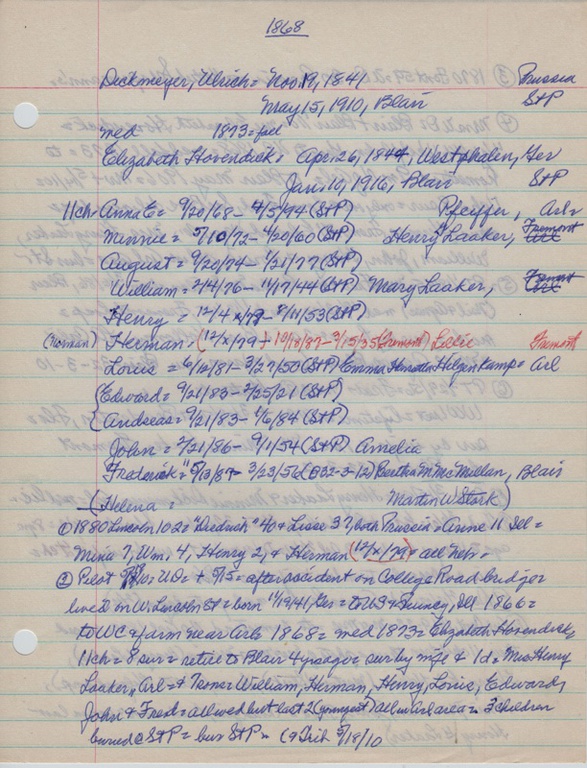 1868
Dickmeyer, Ulrich = Nov. 19, 1841 Prussia
May 15, 1910, Blair S+P
med 1873 =
Elizabeth Hovendick = Apr. 26, 1844, Westphalen, Ger
Jan. 16, 1916, Blair S+P
11ch = Anna E = 9/20/68 - 4/5/94 (S+P) Pfeiffer, Arl =
Minnie = 5/10/72 - 4/20/60 (S+P) Henry Laaker, Fremont
August = 9/20/74 - 1/21/77 (S+P)
William = 2/4/76 - 11/17/44 (S+P) Mary Laaker, Fremont
Henry = 12/4 x/79 - 8/11/53 (S+P)
(Norman) Herman = (12/x/79 + 10/18/87 - 3/15/35 (Fremont) Lillie Fremont
Louis = 6/12/81 - 3/27/50 (S+P) Emma Henrietta Hilgenkamp = Arl
{Edward = 9/21/83 - 2/25/21 (S+P)
{Andreas = 9/21/83 - 1/6/84 (S+P)
John = 2/21/86 - 9/1/54 (S+P) Amelia
Frederick = 5/13/89 - 3/23/56 (B32-3-12) Bertha M McMillan, Blair
(Helena = Martin W Stork)
① 1880 Lincoln 102 = "Diedrich" 40 & Liese 37, both Prussia = Anne 11 Ill =
Mina 7, Wm. 4, Henry 2, & Herman (12/x/79) = all Neb =
② Pilot + 5/15 = after accident on College Road bridge =
lived on W. Lincoln St = born 11/19/41, Ger = to US & Quincy, Ill 1866 =
to WC & farm near Arl 1868 = med 1873 = Elizabeth Hovendick,
11ch = 8 sur = retire to Blair 4 yrs ago = sur by wife & 1d = Mrs Henry
Laaker, Arl = & 7 sons = William, Herman, Henry, Louis, Edward,
John & Fred = all wed but last 2 (youngest) all in Arl area = 3 children
buried @ S+P = bur S+P = (& Trib 5/18/10